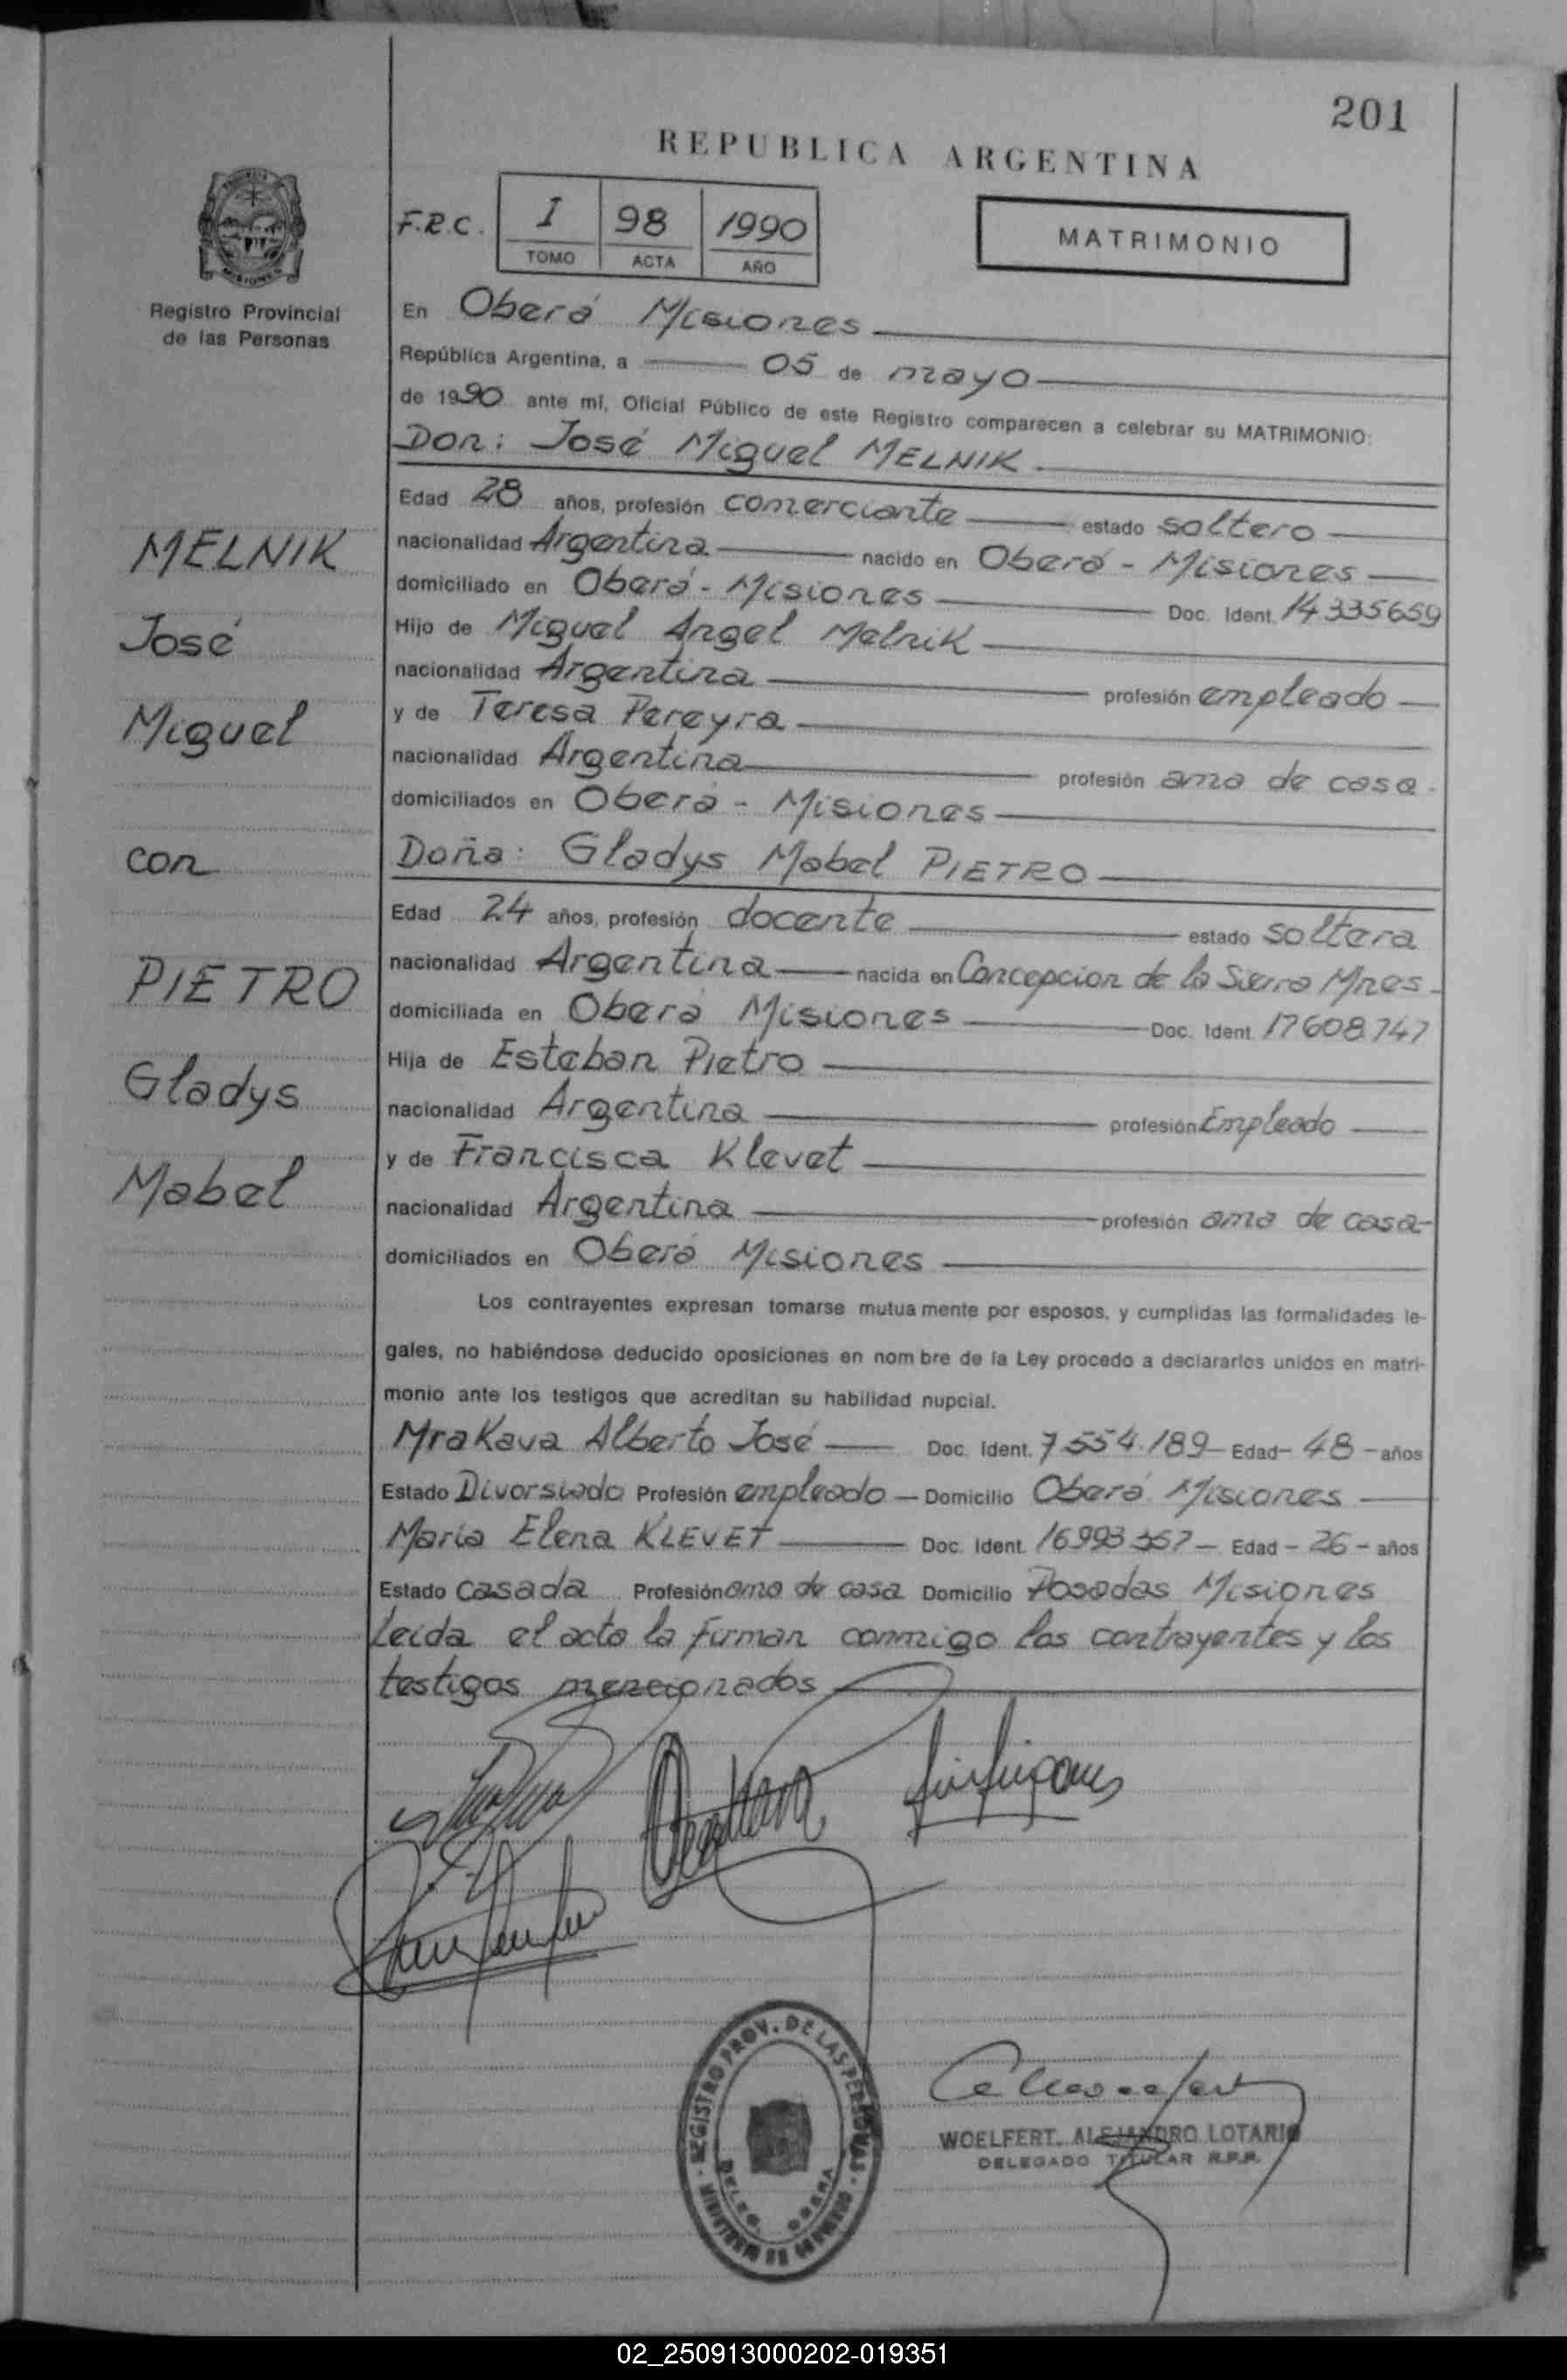 201
REPUBLICA ARGENTINA
F.R.C. I 98 1990
TOMO ACTA AÑO
MATRIMONIO
Registro Provincial
de las Personas
En Oberá Misiones
República Argentina, a 05 de mayo
de 1990 ante mí, Oficial Público de este Registro comparecen a celebrar su MATRIMONIO:
Don: José Miguel MELNIK
Edad 28 años, profesión comerciante estado soltero
nacionalidad Argentina nacido en Oberá - Misiones
domiciliado en Oberá - Misiones Doc. Ident. 14335659
Hijo de Miguel Angel Melnik
nacionalidad Argentina profesión empleado
y de Teresa Pereyra
nacionalidad Argentina profesión ama de casa
domiciliados en Oberá - Misiones
Doña: Gladys Mabel PIETRO
Edad 24 años, profesión docente estado soltera
nacionalidad Argentina nacida en Concepcion de la Sierra Mnes
domiciliada en Oberá Misiones Doc. Ident. 17608747
Hija de Esteban Pietro
nacionalidad Argentina profesión Empleado
y de Francisca Klevet
nacionalidad Argentina profesión ama de casa
domiciliados en Oberá Misiones
MELNIK
José
Miguel
con
PIETRO
Gladys
Mabel
Los contrayentes expresan tomarse mutuamente por esposos, y cumplidas las formalidades le-
gales, no habiéndose deducido oposiciones en nombre de la Ley procedo a declararlos unidos en matri-
monio ante los testigos que acreditan su habilidad nupcial.
Mrakava Alberto José Doc. Ident. 7554.189 Edad 48 años
Estado Divorsiado Profesión empleado Domicilio Oberá Misiones
María Elena KLEVET Doc. Ident. 16993557 Edad 26 años
Estado casada Profesión ama de casa Domicilio Posadas Misiones
Leida el acta la firman conmigo los contrayentes y los
testigos mencionados
REGISTRO PROV. DE LAS PERSONAS
MINISTERIO DE GOBIERNO
DELEG. OBERA
WOELFERT. ALEJANDRO LOTARIO
DELEGADO TITULAR R.P.P.
02_250913000202-019351